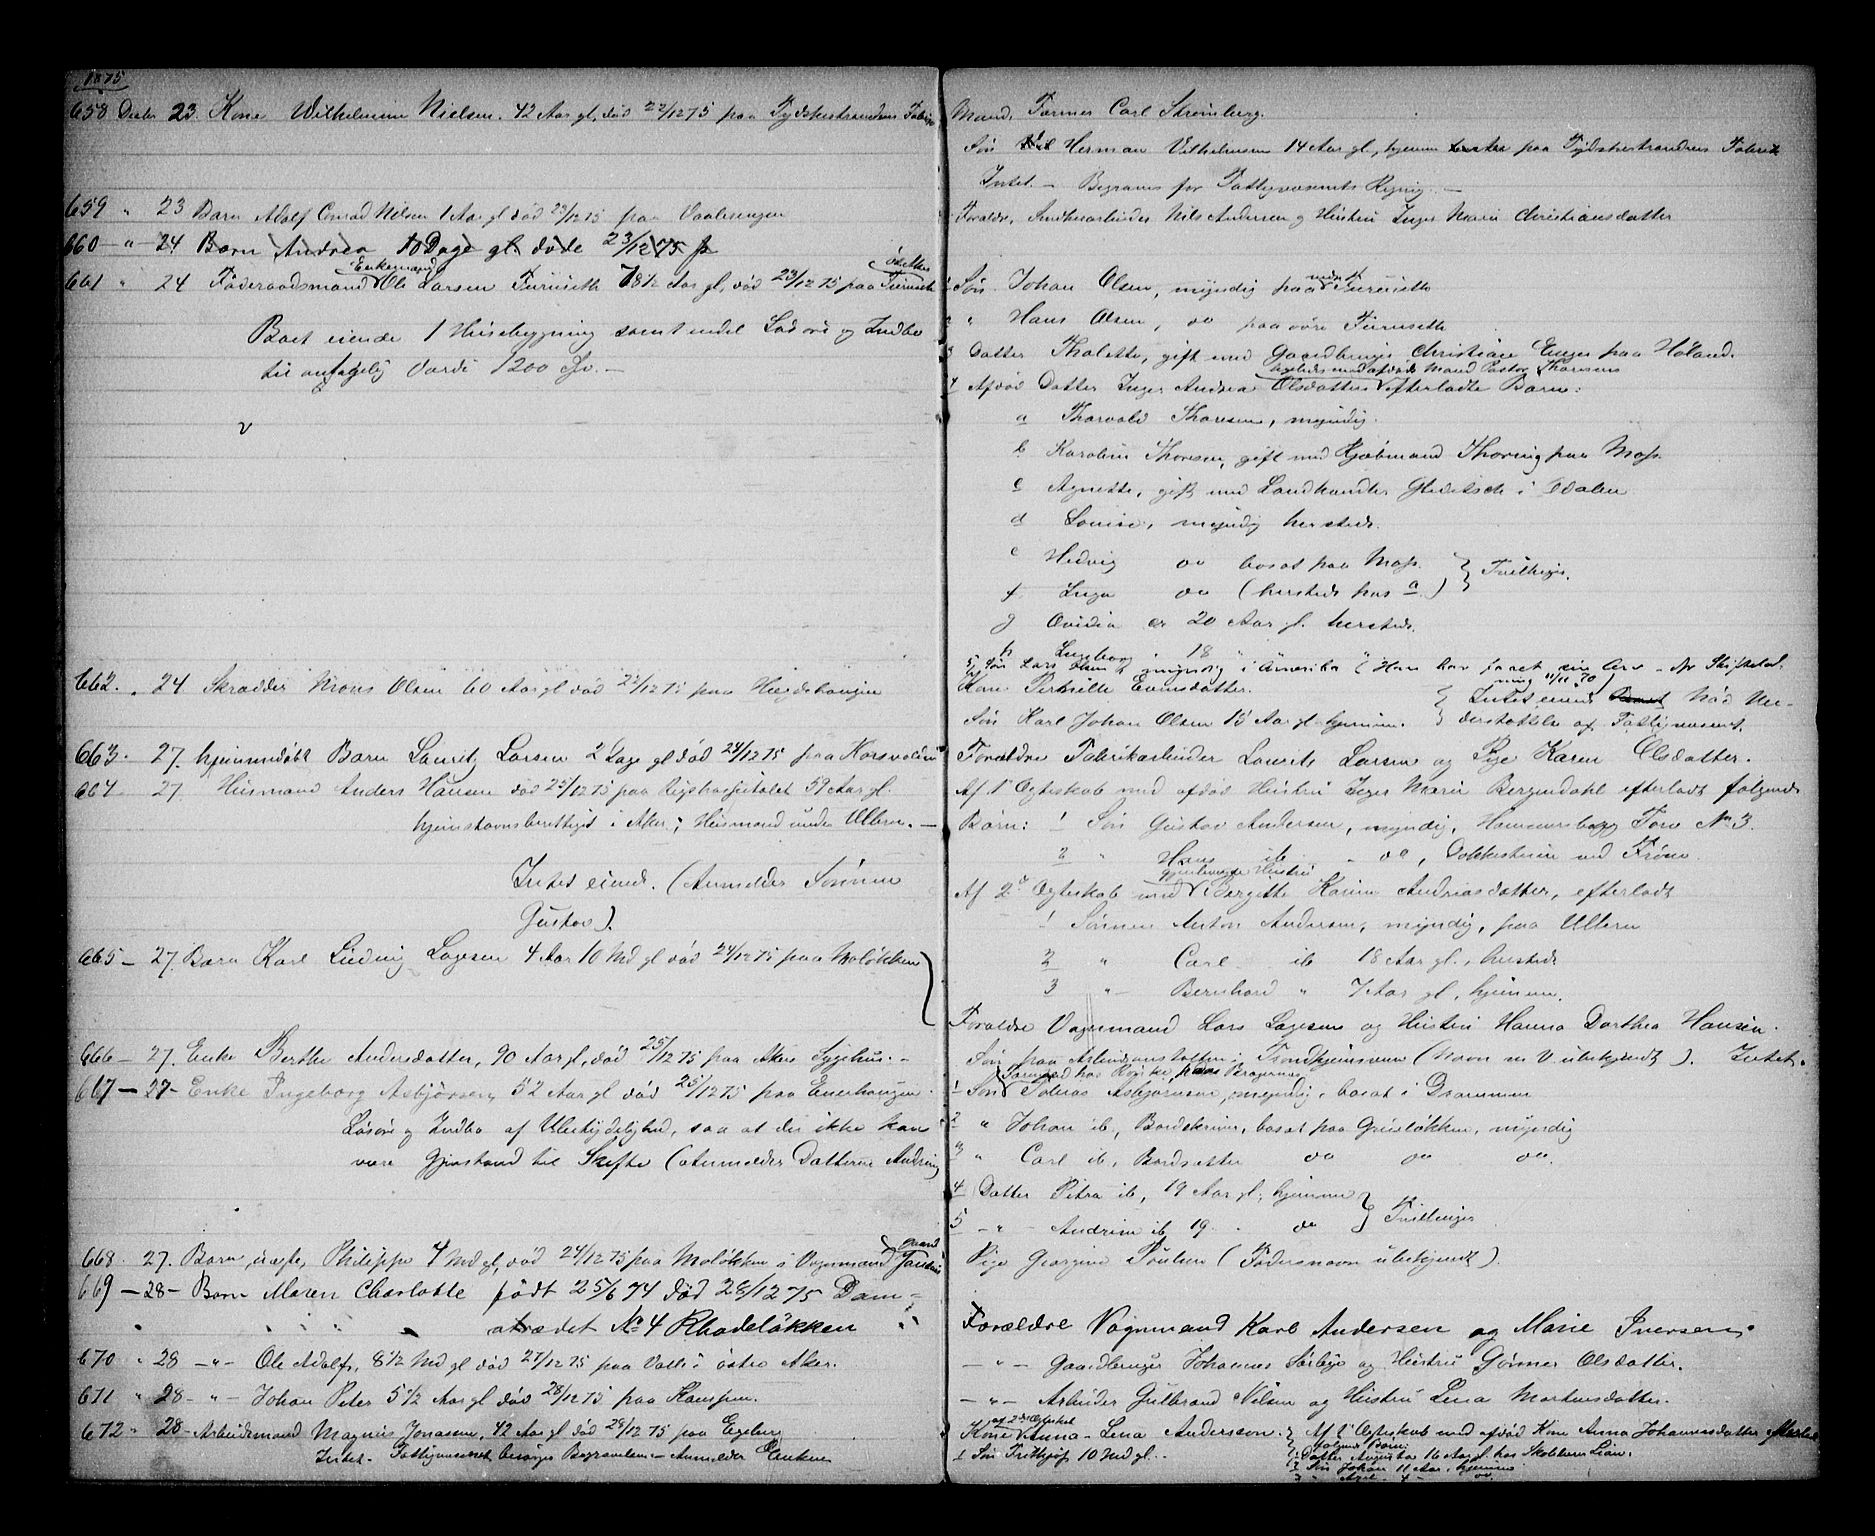 1875
658 Decbr 23. Kone Wilhelmine Nielsen. 42 Aar gl, død 22/12 75 paa Tydskestrandens Fabrik
659 " 23 Barn Adolf Conrad Nilsen 1 Aar gl død 23/12 75 paa Vaalerengen
660 -"- 24 Barn Andrea 10 Dage gl. døde 23/12 75 p
661 " 24 Føderaadsmand Enkemand Ole Larsen Furuseth 78 1/2 Aar gl, død 23/12 75 paa Furuseth
Boet eiende 1 Husebygning samt endel Løsøre og Indbo
til antagelig Værdi 1200 Spd. -
662. " 24 Skrædder Mons Olsen 60 Aar gl død 22/12 75 paa
663. 27. hjemmedøbt Barn Lauritz Larsen 2 Dage gl død 24/12 75 paa Korsvolden
664 27. Husmand Anders Hansen død 25/12 75 paa Rigshospitalet 59 Aar gl.
hjemstavnsberettiget i Aker; Husmand under Ullern. -
Intet eiende. (Anmelder Sønnen
Gustav).
665 - 27. Barn Karl Ludvig Lagesen 4 Aar 10 Md gl død 24/12 75 paa Moløkken
666 - 27. Enke Berthe Andersdatter, 90 Aar gl, død 25/12 75 paa Akers Sygehus. -
667 - 27 - Enke Ingeborg Asbjørnsen, 52 Aar gl død 25/12 75 paa Enerhaugen.
Løsøre og Indbo af Ubetydelighed, saa at der ikke kan
være Gjenstand til Skifte (Anmelder Datteren Andrine)
668. 27. Barn, uægte, Philippe 4 Md gl, død 24/12 75 paa Moløkken i Vognmand Gaard
669 - 28 - Barn Maren Charlotte født 25/6 74 død 28/12 75 Dam=
strædet No 4 Rhodeløkken
670 " 28 -"- Ole Adolf, 8 1/2 Md gl død 27/12 75 paa Valle i østre Aker.
671 " 28 -"- Johan Peter 5 1/2 Aar gl død 28/12 75 paa Kampen.
672 " 28 - Arbeidsmand Magnus Jonassen, 42 Aar gl død 28/12 75 paa Egeberg
Intet. Fattigvæsenet besørger Begravelsen - Anmelder Enken
Mand, Farmer Carl Strømberg.
Søn Herman Vilhelmsen 14 Aar gl, hjemme paa Tydskestrandens Fabrik
Intet. - Begraves for Fattigvæsenets Regning. -
Forældre, Nils Andersen og Hustru Inger Marie Christiansdatter
1 Søn Johan Olsen, myndig paa nedre Furuseth
2 " Hans Olsen, do paa øvre Furuseth
3 Datter Thalette, gift med Gaardbruger Christian Enger paa Høland.
4 Afdød Datter Inger Andrea Olsdatters efterladte Børn:
a Thorvald Thoresen, myndig.
b Karoline Thoresen, gift med Kjøbmand Thoring paa Moss.
c Agnette, gift med Landhandler Gleditsch i Odalen
d Louise, myndig hersteds.
e Hedvig do bosat paa Moss. } Tvillinger.
f Inga do (hersteds hos a.)
g Ovidia er 20 Aar gl. hersteds.
h Ingeborg 18 "
5 Søn Lars Olsen, myndig i Amerika (Han har faaet sin Arv
Kone Pernille Evensdatter. } Intet eiende Nød Un-
Søn Karl Johan Olsen 15 Aar gl. hjemme. } derstøttelse af Fattigvæsenet.
Forældre Fabrikarbeider Laurits Larsen og Pige Karen Olsdatter.
Af 1ste Ægteskab med afdød Hustru Inger Marie Bergendahl efterladt følgende
Børn: 1 Søn Gustav Andersen, myndig, Hammersborg Torv No 3.
2 " Hans ib. " do, ved Frøen
Af 2det Ægteskab med gjenlevende Hustru Bergitte Karine Andreasdatter, efterladt
1 Sønnen Anton Andersen, myndig, paa Ullern
2 " Carl ib 18 Aar gl., hersteds
3 -"- Bernhard " 7 Aar gl, hjemme.
Forældre Vognmand Lars Lagesen og Hustru Hanna Dorthea Hansen.
Søn paa Arbeidsanstalten i Trondhjemsveien (Navn m. V. ubekjendt). Intet.
1 Søn Tobias Asbjørnsen, myndig, bosat i Drammen
2 " Johan ib., Bordskriver, bosat paa Grünløkken, myndig
3 " Carl ib., Bordsetter do do do.
4 Datter Petra ib, 19 Aar gl, hjemme } Tvillinger
5 -"- Andrine ib 19. " do
Pige Georgine Poulsen (Fadersnavn ubekjendt).
Forældre Vognmand Karl Andersen og Marie Iversen.
-"- Gaardbruger Johannes Sørbye og Hustru Gunner Olsdatter.
-"- Arbeider Gulbrand Nilsen og Hustru Lena Mortensdatter.
Kone af 2det Ægteskab Anna-Lena Andersson. } Af 1ste Ægteskab med afdød Kone Anna Johannesdatter
1 Søn Frithjof 10 Md gl. - følgende Børn:
1 Datter Augusta 16 Aar gl hos
2 Søn Johan 11 Aar, hjemme
3 " Axel - 4 - do.